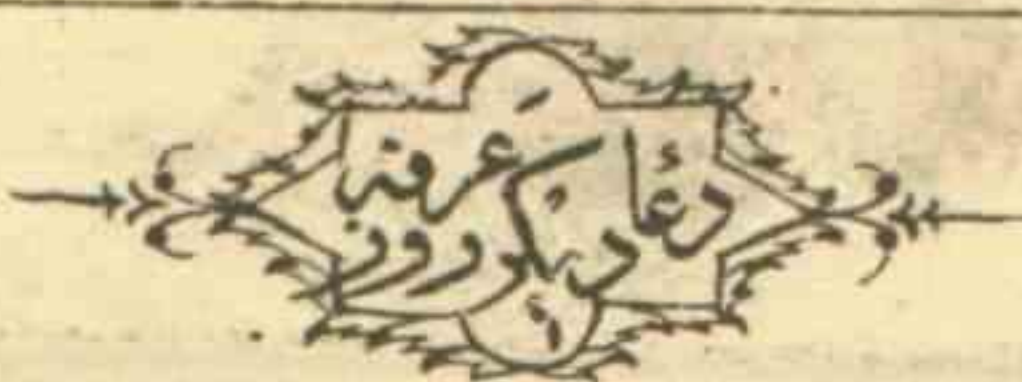 دعاء دیگر روز عرفه